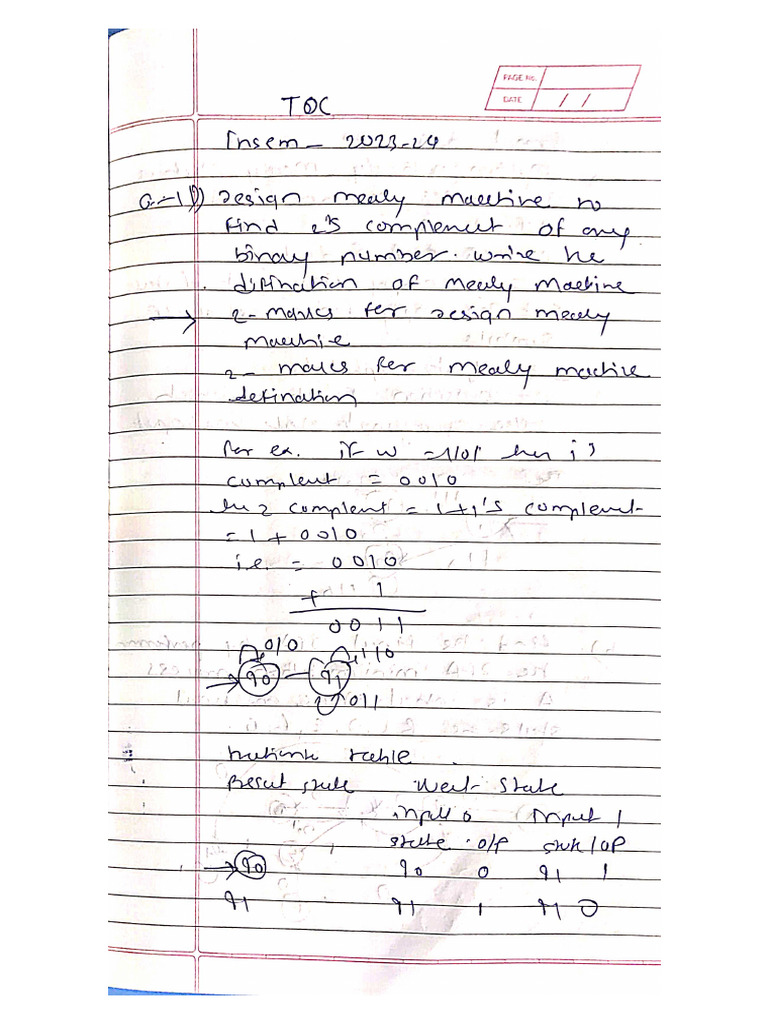 PAGE No.
DATE / /
TOC
Insem - 2023-24
Q-1) Design mealy machine to
find 2's complement of any
binary number. write the
difination of mealy machine
2- marks for design mealy
machine
2- marks for mealy machine
defination
for ex. if w = 1101 then 1's
complent = 0010
the 2 complent = 1+1's complement
= 1 + 0010
i.e. = 0010
+ 1
0011
0/0 1/0
q0 q1
0/1
table
Present state Next State
input 0 Input 1
state o/p state / OP
q0 q0 0 q1 1
q1 q1 1 q1 0